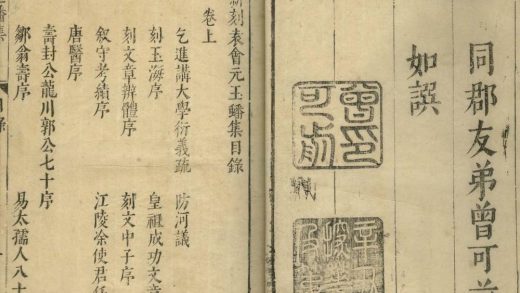 同郡友弟曾可前
如譔
曾印可前
新刻袁會元玉蟠集目錄
卷上
乞進講大學衍義疏 防河議
刻玉海序 皇祖成功文
刻文章辨體序 刻文中子序
叙守考績序 江陵使君任
唐醫序
壽封公龍川郭公七十序
鄒翁壽序 易太孺人八十
蟠集 目錄